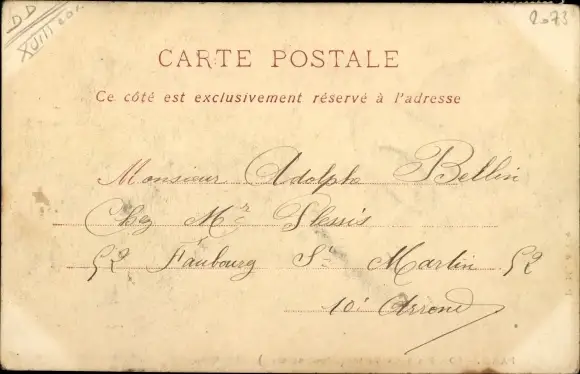 DD
XVIII 201
2073
CARTE POSTALE
Ce côté est exclusivement réservé à l'adresse
Monsieur Adolphe Bellin
Chez Mr Plessis
52 Faubourg St Martin 52
10e Arrond